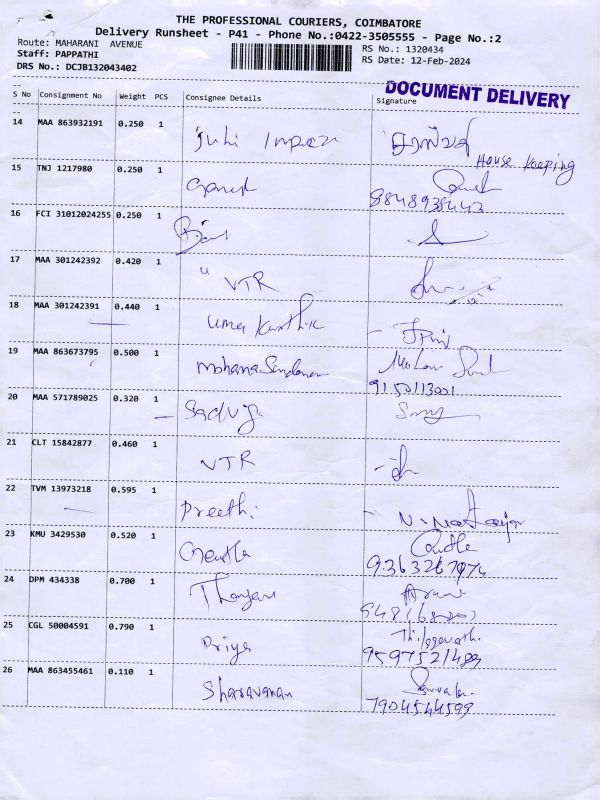 THE PROFESSIONAL COURIERS, COIMBATORE
Delivery Runsheet - P41 - Phone No.:0422-3505555 - Page No.:2
Route: MAHARANI AVENUE RS No.: 1320434
Staff: PAPPATHI RS Date: 12-Feb-2024
DRS No.: DCJB132043402
DOCUMENT DELIVERY
S No Consignment No Weight PCS Consignee Details Signature
14 MAA 863932191 0.250 1
House Keeping
15 TNJ 1217980 0.250 1 Ganesh
8848938443
16 FCI 31012024255 0.250 1
17 MAA 301242392 0.420 1 " VTR
18 MAA 301242391 0.440 1 Uma Karthik
19 MAA 863673795 0.500 1 Mohana Sundaram
9150113001
20 MAA 571789025 0.320 1
21 CLT 15842877 0.460 1 VTR
22 TVM 13973218 0.595 1 Preethi
23 KMU 3429530 0.520 1 Geetha
24 DPM 434338 0.700 1
25 CGL 50004591 0.790 1 Priya Thilagavathi
9597521489
26 MAA 863455461 0.110 1 Sharavanan
7904544599